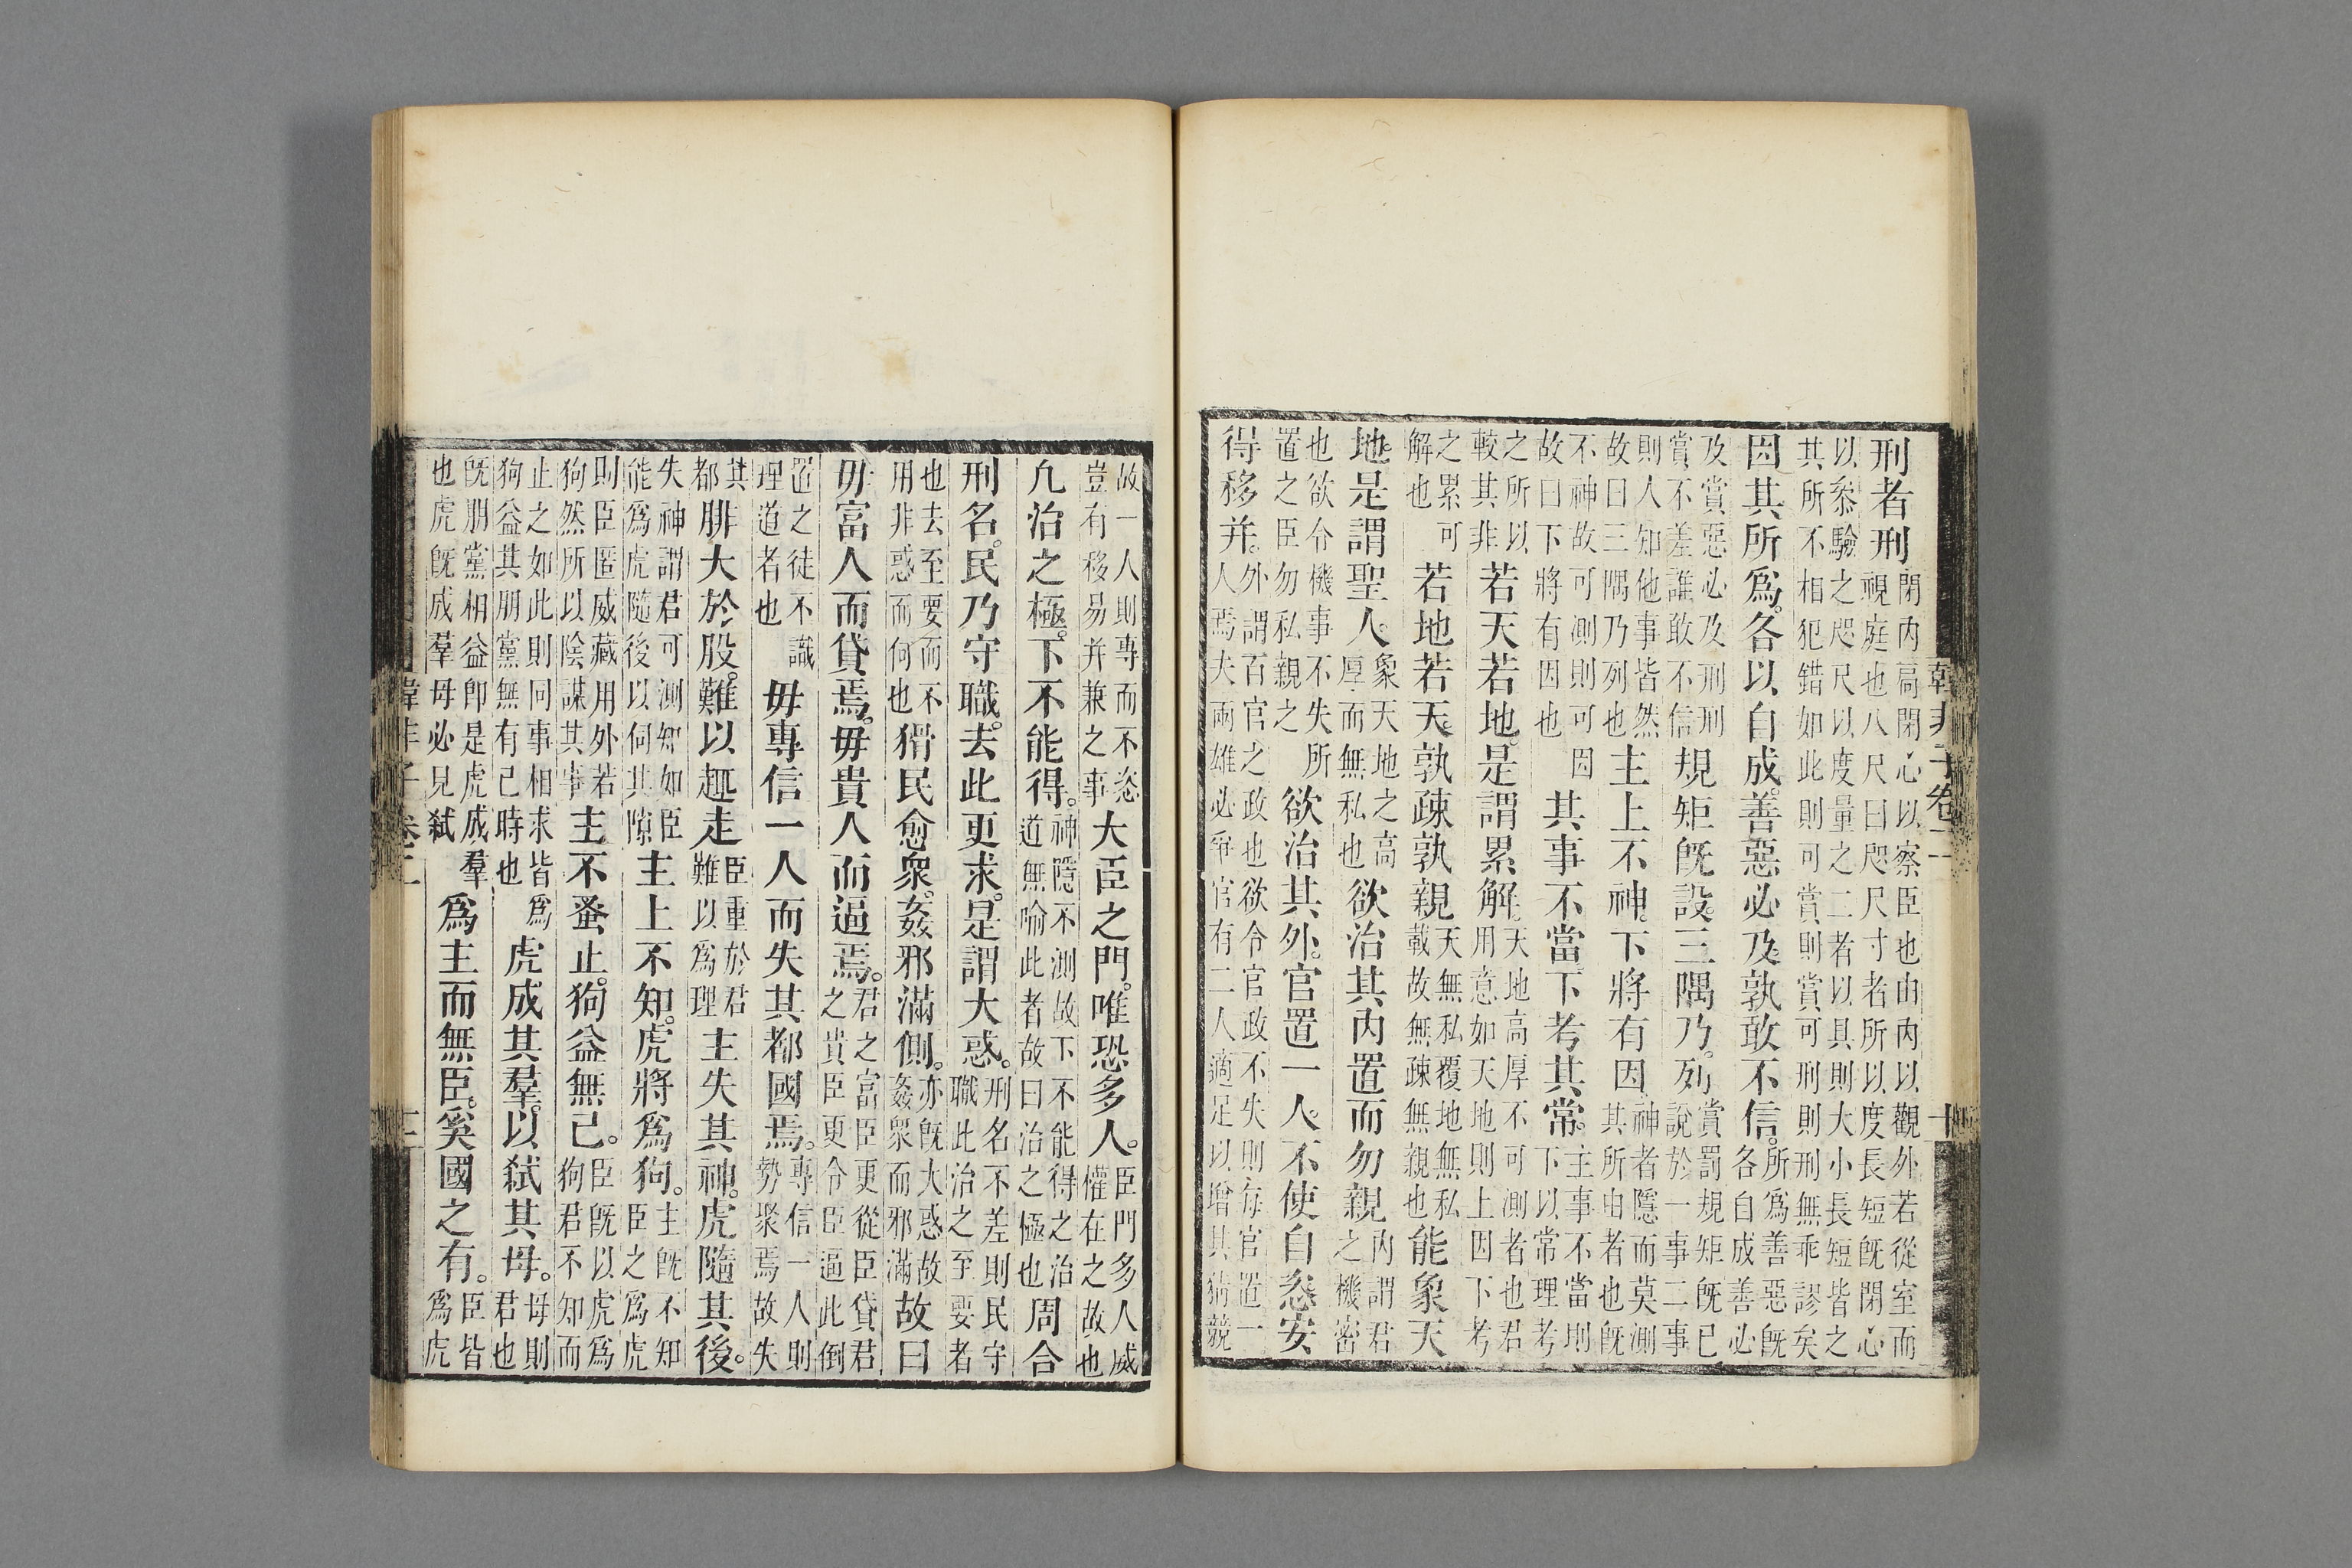 韓非子卷二
十
刑者刑閉內扃閉心以察臣也由內以觀外若從室而視庭也八尺曰咫尺寸者所以度長短既閉心
以叅驗之咫尺以度量之二者以具則大小長短皆之其所不相犯錯如此則可賞則賞可刑則刑無乖謬矣
因其所爲。各以自成。善惡必及。孰敢不信。所爲善惡既各自成善必
及賞惡必及刑刑賞不差誰敢不信規矩旣設。三隅乃。列賞罰規矩旣已說於一事二事
則人知他事皆然故曰三隅乃列也主上不神。下將有因。神者隱而莫測其所由者也旣
不神故可測則可因故曰下將有因也其事不當下考其常。主事不當則下以常理考
之所以較其非若天若地。是謂累解。天地高厚不可測者也君用意如天地則上因下考
之累可解也若地若天。孰疎孰親天無私覆地無私載故無疎無親也能象天
地。是謂聖人。象天地之高厚而無私也欲治其內置而勿親內謂君之機密
也欲令機事不失所置之臣勿私親之欲治其外。官置一人。不使自恣安
得移并。外謂百官之政也欲令官政不失則每官置一人焉夫兩雄必爭官有二人適足以增其猜競
故一人則專而不恣豈有移易并兼之事大臣之門。唯恐多人。臣門多人威權在之故也
凡治之極。下不能得。神隱不測故下不能得之治道無喻此者故曰治之極也周合
刑名。民乃守職。去此更求。是謂大惑。刑名不差則民守職此治之至要者
也去至要而不用非惑而何也猾民愈衆。姦邪滿側。亦旣大惑故姦衆而邪滿故曰
毋富人而貸焉。毋貴人而逼焉。君之富臣更從臣貸君之貴臣更令臣逼此倒
置之徒不識理道者也毋專信一人而失其都國焉。專信一人則勢聚焉焉故失
其都腓大於股。難以趣走臣重於君難以爲理主失其神。虎隨其後。
失神謂君可測知如臣能爲虎隨後以伺其隙主上不知。虎將爲狗。主旣不知臣之爲虎
則臣匿威藏用外若狗然所以陰謀其事主不蚤止。狗益無已。臣旣以虎爲狗君不知而
止之如此則同事相求皆爲狗益其朋黨無有已時也虎成其羣。以弒其母。母則君也
旣朋黨相益卽是虎成羣也虎旣成羣母必見弒爲主而無臣。奚國之有。臣皆爲虎
韓非子卷二